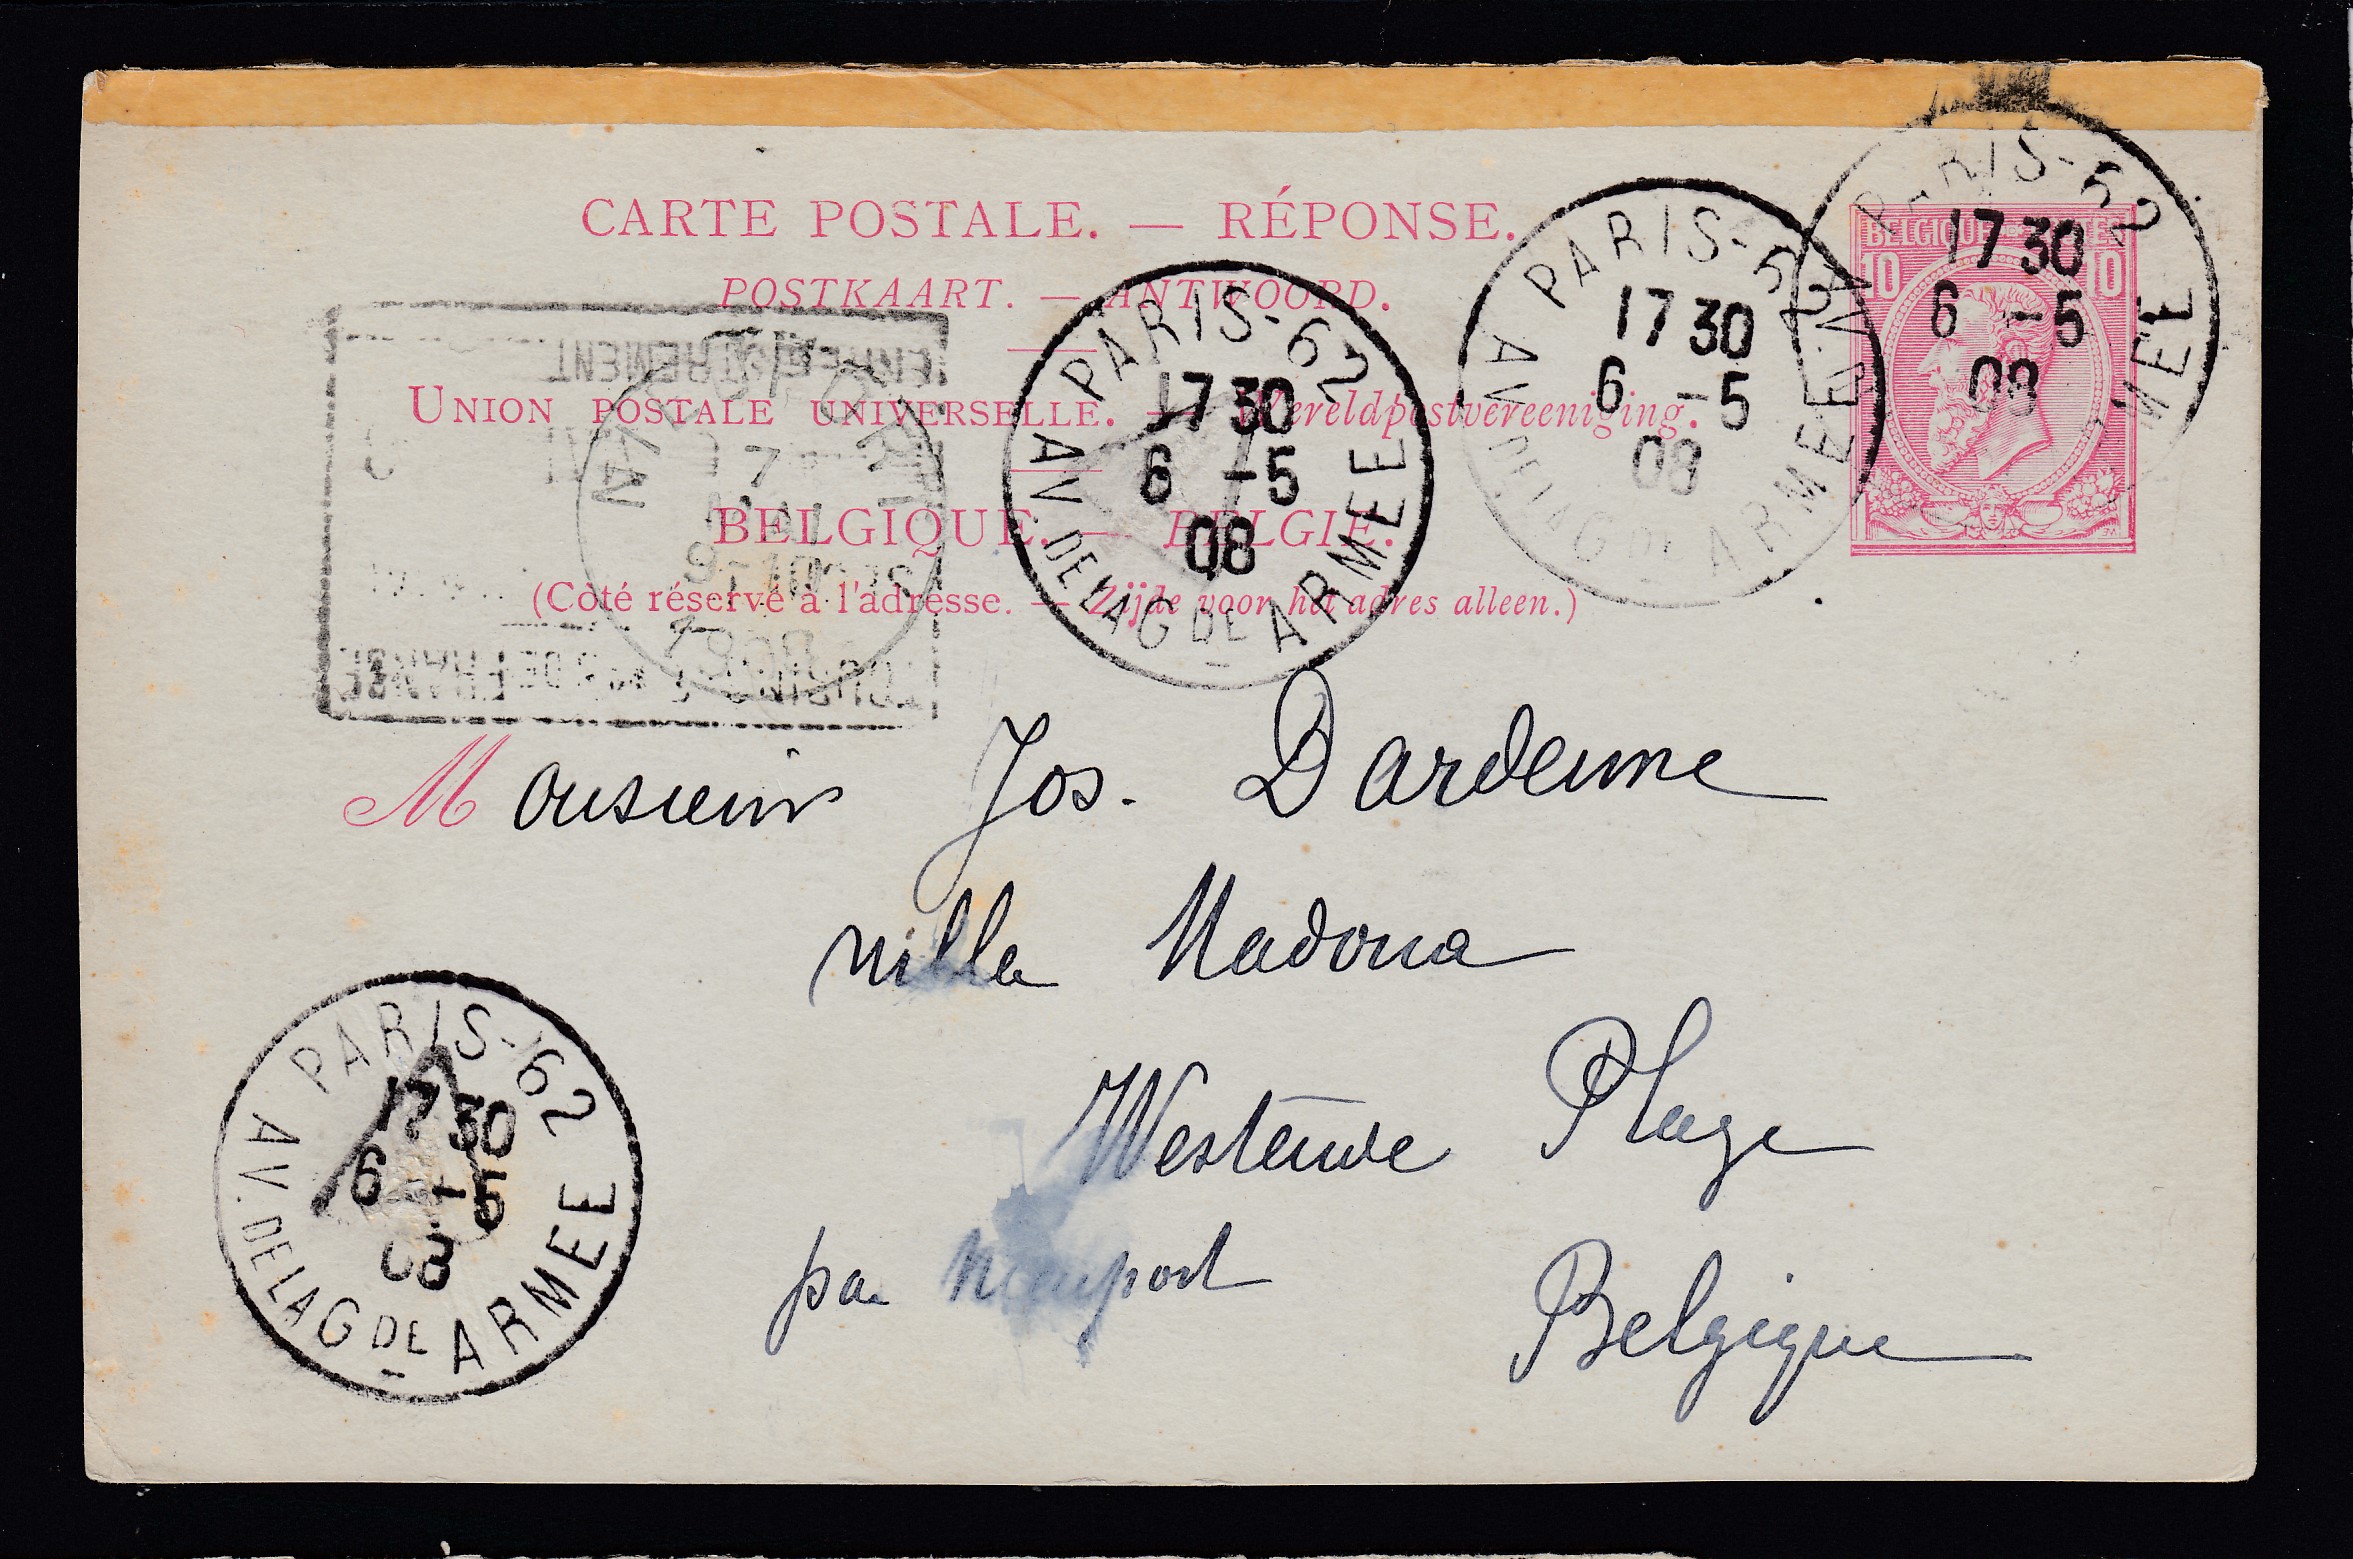 CARTE POSTALE. — RÉPONSE.
POSTKAART. — ANTWOORD.
UNION POSTALE UNIVERSELLE. — Wereldpostvereeniging.
BELGIQUE. — BELGIE.
(Côté réservé à l'adresse. — Zijde voor het adres alleen.)
BELGIQUE POSTES
10 10
PARIS-62
17 30
6 -5
08
AV. DE LA G DE ARMEE
PARIS-62
17 30
6 -5
08
AV. DE LA G DE ARMEE
PARIS-62
17 30
6 -5
08
ENREGISTREMENT
7
MEI
1908
Monsieur Jos. Dardenne
villa Madona
Westende Plage
par Nieuport
Belgique
PARIS-62
17 30
6 -5
08
AV. DE LA G DE ARMEE